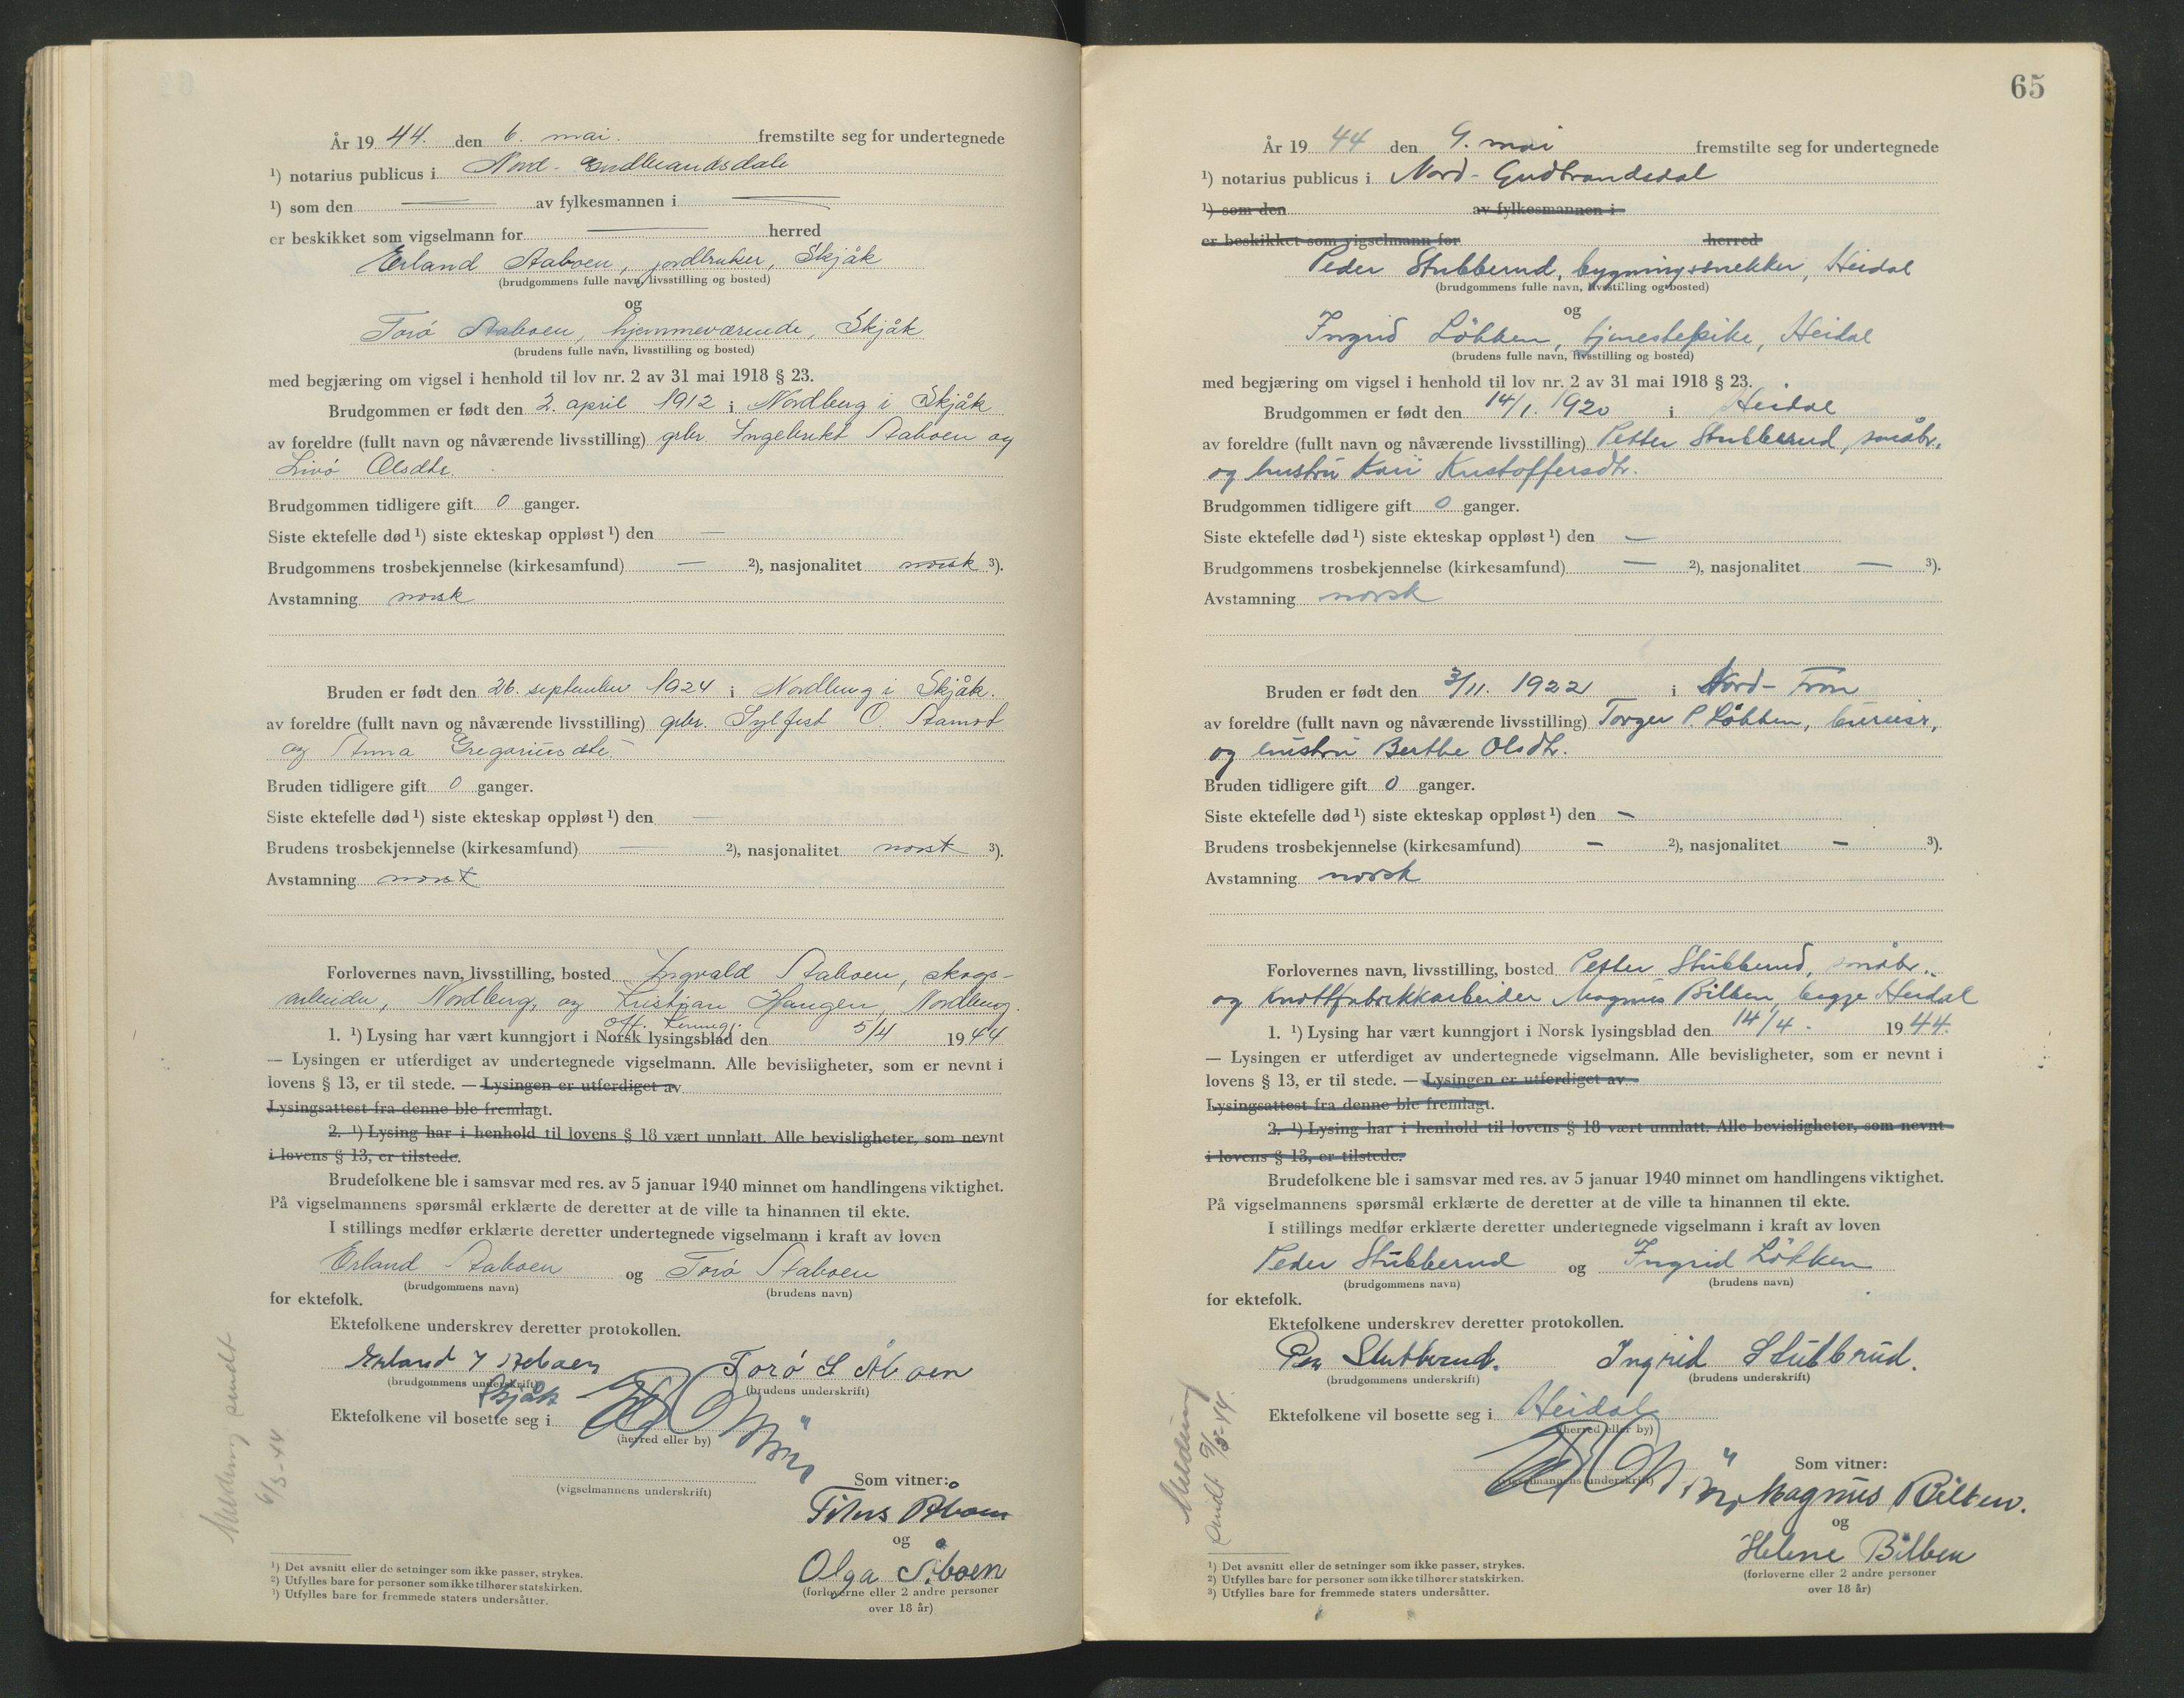 År 19 44. den 6. mai. fremstilte seg for undertegnede
¹) notarius publicus i Nord-Gudbrandsdale
¹) som den — av fylkesmannen i —
er beskikket som vigselmann for — herred
Erland Aaboen, jordbruker, Skjåk
(brudgommens fulle navn, livsstilling og bosted)
og
Torø Aaboen, hjemmeværende, Skjåk
(brudens fulle navn, livsstilling og bosted)
med begjæring om vigsel i henhold til lov nr. 2 av 31 mai 1918 § 23.
Brudgommen er født den 2. april 1912 i Nordberg i Skjåk
av foreldre (fullt navn og nåværende livsstilling) gbr. Ingebrikt Aaboen og
Livø Olsdtr.
Brudgommen tidligere gift 0 ganger.
Siste ektefelle død ¹) siste ekteskap oppløst ¹) den —
Brudgommens trosbekjennelse (kirkesamfund) — ²), nasjonalitet norsk ³).
Avstamning norsk
Bruden er født den 26. september 1924 i Nordberg i Skjåk.
av foreldre (fullt navn og nåværende livsstilling) gbr. Sylfest O. Aamot
og Anna Gregoriusdtr.
Bruden tidligere gift 0 ganger.
Siste ektefelle død ¹) siste ekteskap oppløst ¹) den —
Brudens trosbekjennelse (kirkesamfund) — ²), nasjonalitet norsk ³).
Avstamning norsk
Forlovernes navn, livsstilling, bosted Ingvald Aaboen, skogs-
arbeider, Nordberg, og Kristian Haugen, Nordberg.
off. Kunngj.
1. ¹) Lysing har vært kunngjort i Norsk lysingsblad den 5/4 1944
— Lysingen er utferdiget av undertegnede vigselmann. Alle bevisligheter, som er nevnt i
lovens § 13, er til stede. — Lysingen er utferdiget av
Lysingsattest fra denne ble fremlagt.
2. ¹) Lysing har i henhold til lovens § 18 vært unnlatt. Alle bevisligheter, som nevnt
i lovens § 13, er tilstede.
Brudefolkene ble i samsvar med res. av 5 januar 1940 minnet om handlingens viktighet.
På vigselmannens spørsmål erklærte de deretter at de ville ta hinannen til ekte.
I stillings medfør erklærte deretter undertegnede vigselmann i kraft av loven
Erland Aaboen og Torø Aaboen
(brudgommens navn) (brudens navn)
for ektefolk.
Ektefolkene underskrev deretter protokollen.
Erland Aaboen Torø S Åboen
(brudgommens underskrift) (brudens underskrift)
Ektefolkene vil bosette seg i Skjåk
(herred eller by)
(vigselmannens underskrift)
Som vitner:
Åboen
og
Olga Åboen
(forloverne eller 2 andre personer
over 18 år)
Melding sendt
6/5-44
¹) Det avsnitt eller de setninger som ikke passer, strykes.
²) Utfylles bare for personer som ikke tilhører statskirken.
¹) Utfylles bare for fremmede staters undersåtter.
65
År 19 44 den 9. mai fremstilte seg for undertegnede
¹) notarius publicus i Nord-Gudbrandsdal
¹) som den av fylkesmannen i
er beskikket som vigselmann for herred
Peder Stubberud, bygningssnekker, Heidal
(brudgommens fulle navn, livsstilling og bosted)
og
Ingrid Løkken, tjenestepike, Heidal
(brudens fulle navn, livsstilling og bosted)
med begjæring om vigsel i henhold til lov nr. 2 av 31 mai 1918 § 23.
Brudgommen er født den 14/1. 1920 i Heidal
av foreldre (fullt navn og nåværende livsstilling) Petter Stubberud, småbr.,
og hustru Kari Kristoffersdtr.
Brudgommen tidligere gift 0 ganger.
Siste ektefelle død ¹) siste ekteskap oppløst ¹) den —
Brudgommens trosbekjennelse (kirkesamfund) — ²), nasjonalitet — ³).
Avstamning norsk
Bruden er født den 3/11. 1922 i Nord-Fron
av foreldre (fullt navn og nåværende livsstilling) Torger P. Løkken, bureisr,
og hustru Berthe Olsdtr.
Bruden tidligere gift 0 ganger.
Siste ektefelle død ¹) siste ekteskap oppløst ¹) den —
Brudens trosbekjennelse (kirkesamfund) — ²), nasjonalitet — ³).
Avstamning norsk
Forlovernes navn, livsstilling, bosted Petter Stubberud, småbr.,
og knottfabrikkarbeider Magnus Bilben, begge Heidal
1. ¹) Lysing har vært kunngjort i Norsk lysingsblad den 14/4. 1944.
— Lysingen er utferdiget av undertegnede vigselmann. Alle bevisligheter, som er nevnt i
lovens § 13, er til stede. — Lysingen er utferdiget av
Lysingsattest fra denne ble fremlagt.
2. ¹) Lysing har i henhold til lovens § 18 vært unnlatt. Alle bevisligheter, som nevnt
i lovens § 13, er tilstede.
Brudefolkene ble i samsvar med res. av 5 januar 1940 minnet om handlingens viktighet.
På vigselmannens spørsmål erklærte de deretter at de ville ta hinannen til ekte.
I stillings medfør erklærte deretter undertegnede vigselmann i kraft av loven
Peder Stubberud og Ingrid Løkken
(brudgommens navn) (brudens navn)
for ektefolk.
Ektefolkene underskrev deretter protokollen.
Per Stubberud. Ingrid Stubbrud.
(brudgommens underskrift) (brudens underskrift)
Ektefolkene vil bosette seg i Heidal
(herred eller by)
(vigselmannens underskrift)
Som vitner:
Magnus Bilben.
og
Helene Bilben
(forloverne eller 2 andre personer
over 18 år)
Melding
sendt 9/5-44.
¹) Det avsnitt eller de setninger som ikke passer, strykes.
²) Utfylles bare for personer som ikke tilhører statskirken.
³) Utfylles bare for fremmede staters undersåtter.